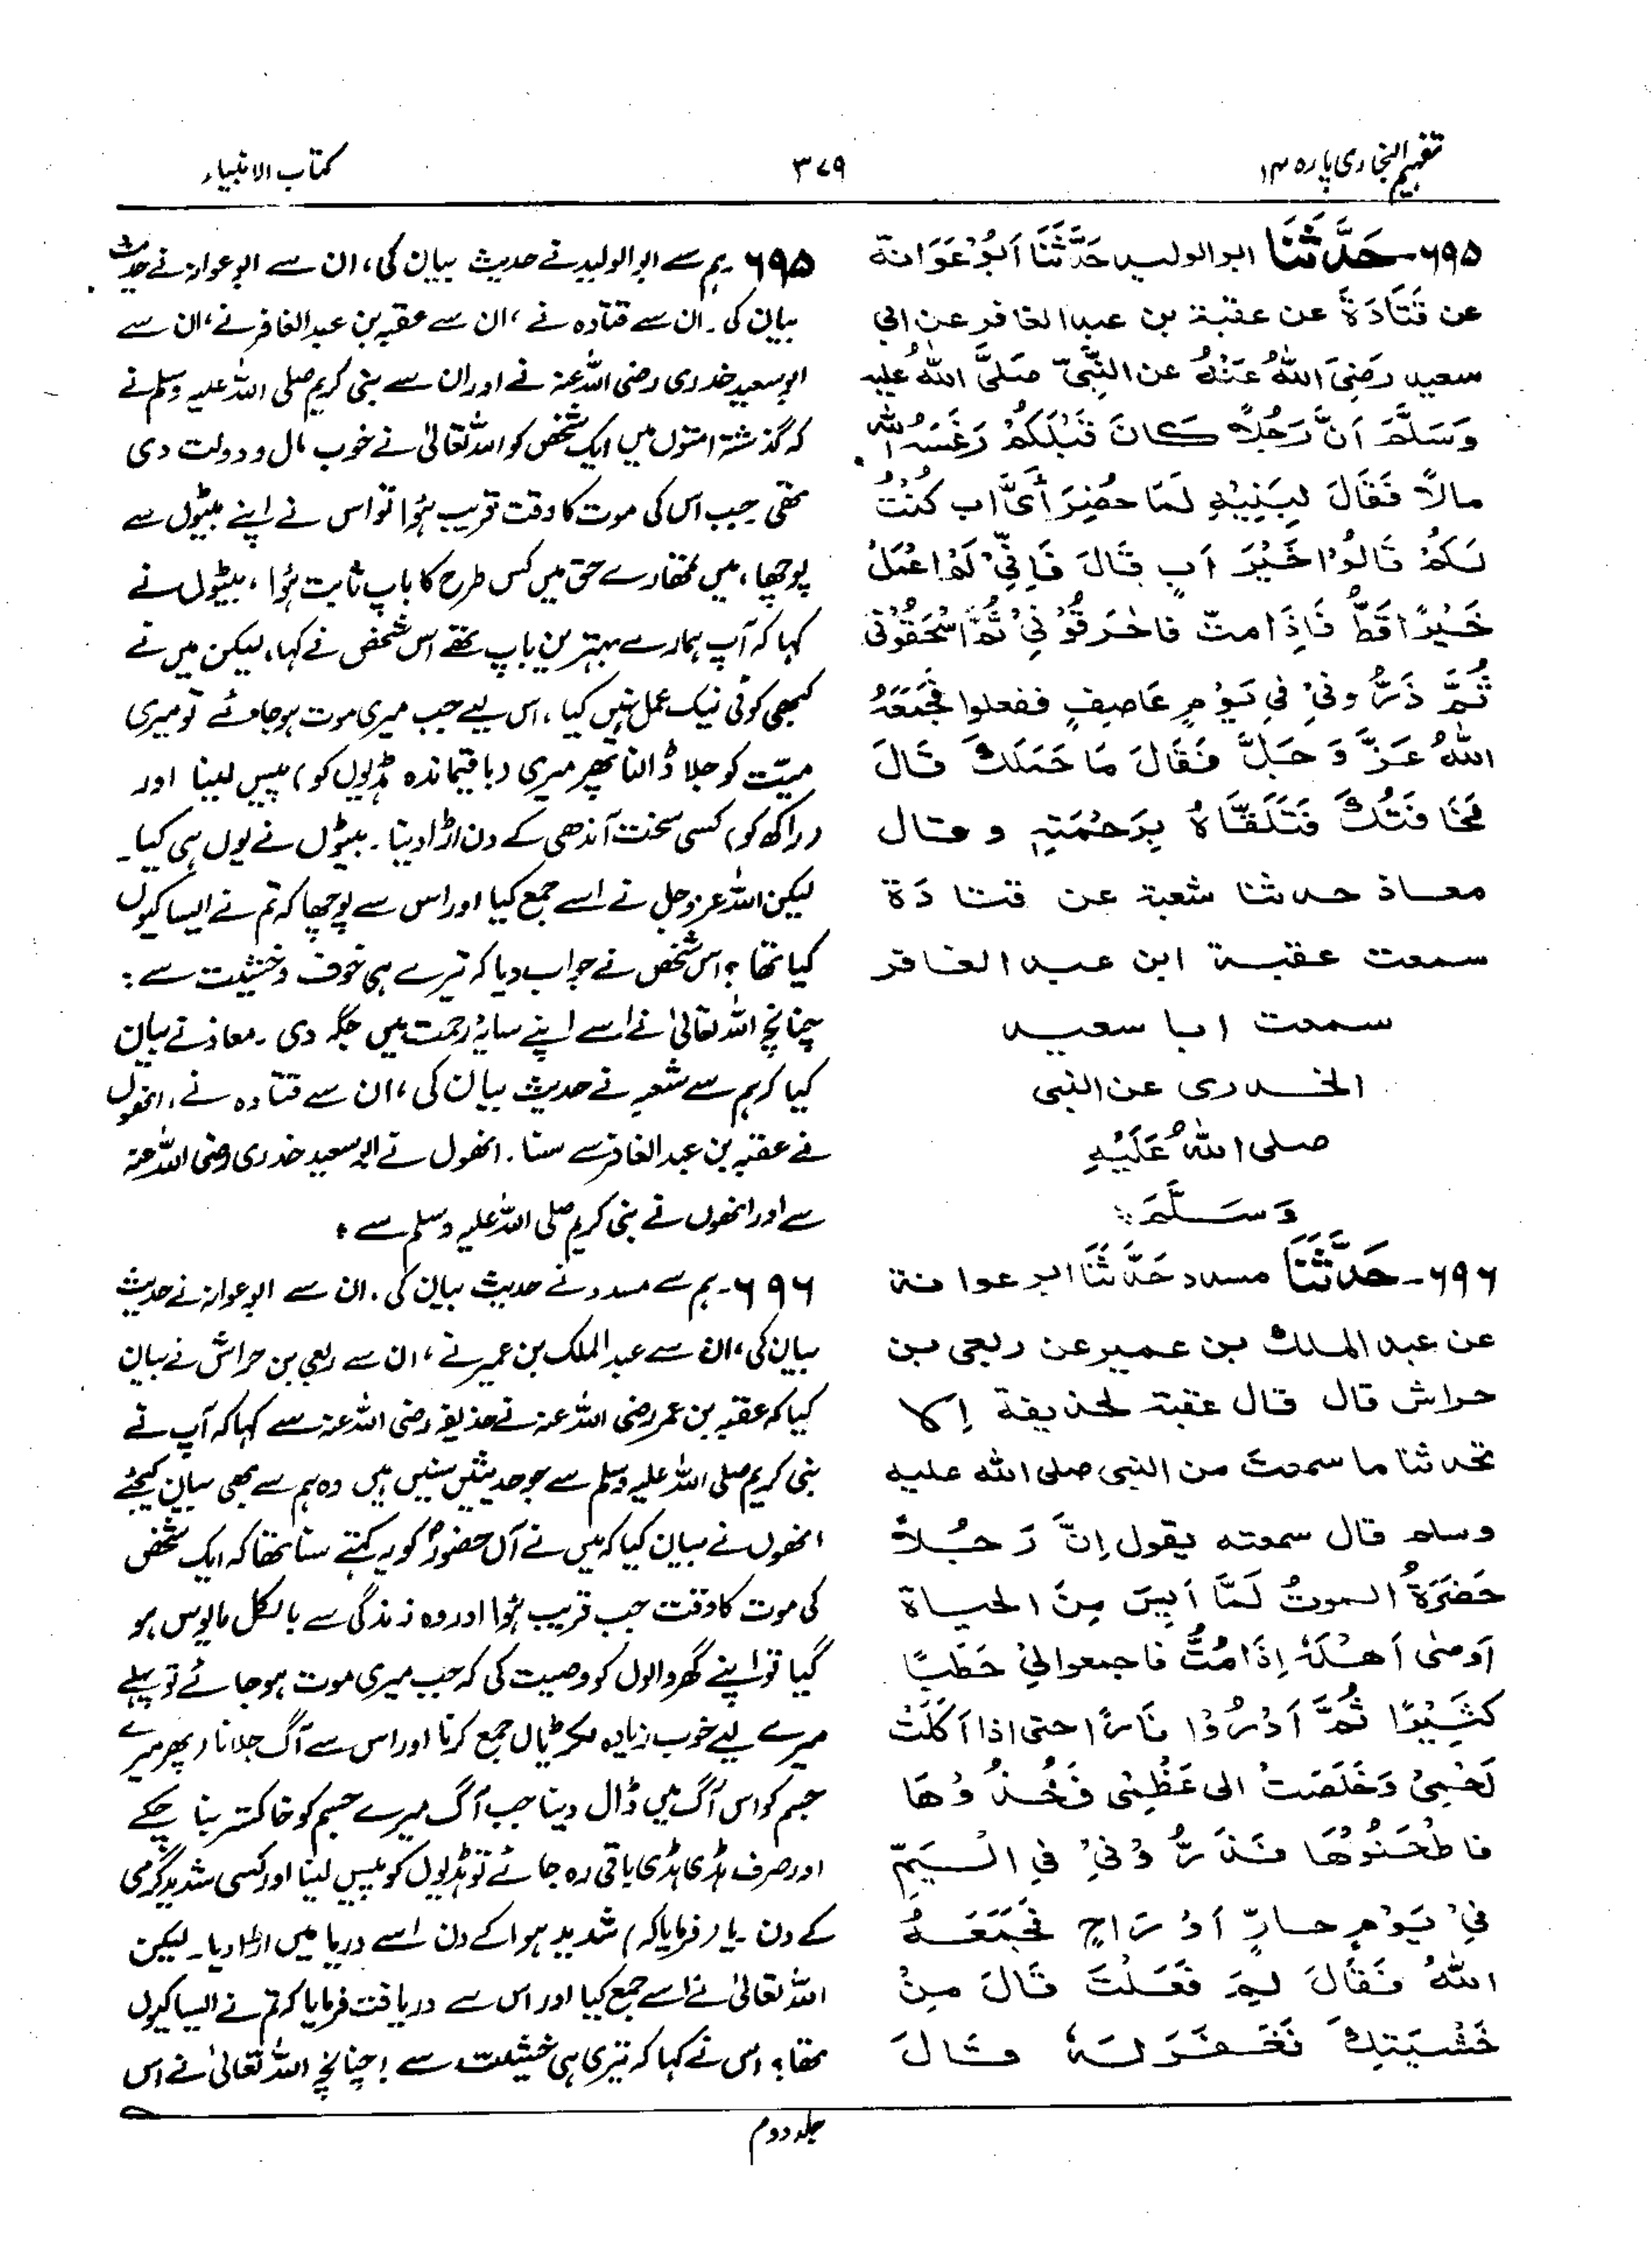 تفہیم البخاری پارہ ۱۴
۳۷۹
کتاب الانبیاء
۶۹۵- حَدَّثَنَا ابوالولید حَدَّثَنَا اَبُوْعَوَانَة
عن قَتَادَةَ عن عقبة بن عبدالغافر عن ابی
سعید رَضِیَ اللّٰهُ عَنْهُ عن النَّبِیِّ صَلَّی اللّٰهُ علیه
وَسَلَّمَ اَنَّ رَجُلًا کَانَ قَبْلَکُمْ رَغَسَهُ اللّٰه
مالًا فَقَالَ لِبَنِیْهِ لَمَّا حُضِرَ أَیَّ اب کُنْتُ
لَکُمْ قَالُوْا خَیْرَ اَبٍ قَالَ فَاِنِّیْ لَمْ اعْمَلْ
خَیْرًا قَطُّ فَاِذَا متّ فاحْرَقُوْنِیْ ثُمَّ اسْحَقُوْنِی
ثُمَّ ذَرُّونِیْ فِی یَوْمٍ عَاصِفٍ ففعلوا فَجَمَعَهُ
اللّٰهُ عَزَّ وَجَلَّ فَقَالَ مَا حَمَلَكَ قَالَ
مَخَافَتُكَ فَتَلَقَّاهُ بِرَحْمَتِهٖ وقال
معاذ حدثنا شعبة عن قتادَة
سمعت عقبة ابن عبدالغافر
سمعت ابا سعید
الخدری عن النبی
صلی اللّٰهُ عَلَیْهِ
وَسَلَّمَ
۶۹۶- حَدَّثَنَا مسدد حَدَّثَنَا ابوعوانة
عن عبدالملك بن عمیر عن ربعی بن
حراش قال قال عقبة لحذیفة اِلا
تحدثنا ما سمعتَ من النبی صلی الله علیه
وسلم قال سمعته یقول اِنَّ رَجُلًا
حَضَرَهُ الموتُ لَمَّا اَیِسَ مِنَ الحیاة
اَوصٰی اَهْلَهٗ اِذَا مُتُّ فاجمعوا لِیْ حَطَبًا
کَثِیْرًا ثُمَّ اَوْرُوْا نَارًا حتی اذا اَکَلَتْ
لَحْمِیْ وَخَلَصَتْ الی عَظْمِی فَخُذُوْهَا
فاطْحَنُوْهَا فَذَرُّوْنِیْ فِی الْیَمِّ
فِیْ یَوْمٍ حارٍّ اَوْ رَاحٍ فَجَمَعَهُ
اللّٰهُ فَقَالَ لِمَ فَعَلْتَ قَالَ مِنْ
خَشْیَتِكَ فَغَفَرَ لَهٗ قَالَ
۶۹۵ ہم سے ابوالولید نے حدیث بیان کی، ان سے ابوعوانہ نے حدیث
بیان کی۔ ان سے قتادہ نے، ان سے عقبہ بن عبدالغافر نے، ان سے
ابوسعید خدری رضی اللہ عنہ نے اور ان سے نبی کریم صلی اللہ علیہ وسلم نے
کہ گذشتہ امتوں میں ایک شخص کو اللہ تعالیٰ نے خوب مال و دولت دی
تھی جب اس کی موت کا وقت قریب ہؤا تو اس نے اپنے بیٹوں سے
پوچھا، میں تمھارے حق میں کس طرح کا باپ ثابت ہؤا، بیٹوں نے
کہا کہ آپ ہمارے بہترین باپ تھے اس شخص نے کہا، لیکن میں نے
کبھی کوئی نیک عمل نہیں کیا، اس لیے جب میری موت ہوجائے تو میری
میّت کو جلا ڈالنا پھر میری (باقیماندہ ہڈیوں کو) پیس لینا اور
(راکھ کو) کسی سخت آندھی کے دن اڑا دینا۔ بیٹوں نے یوں ہی کیا۔
لیکن اللہ عزوجل نے اسے جمع کیا اور اس سے پوچھا کہ تم نے ایسا کیوں
کیا تھا؟ اس شخص نے جواب دیا کہ تیرے ہی خوف و خشیت سے:
چنانچہ اللہ تعالیٰ نے اسے اپنے سایۂ رحمت میں جگہ دی۔ معاذ نے بیان
کیا کہ ہم سے شعبہ نے حدیث بیان کی، ان سے قتادہ نے، انھوں
نے عقبہ بن عبدالغافر سے سنا۔ انھوں نے ابوسعید خدری رضی اللہ عنہ
سے اور انھوں نے نبی کریم صلی اللہ علیہ وسلم سے؛
۶۹۶۔ ہم سے مسدد نے حدیث بیان کی۔ ان سے ابوعوانہ نے حدیث
بیان کی، ان سے عبدالملک بن عمیر نے، ان سے ربعی بن حراش نے بیان
کیا کہ عقبہ بن عمر رضی اللہ عنہ نے حذیفہ رضی اللہ عنہ سے کہا کہ آپ نے
نبی کریم صلی اللہ علیہ وسلم سے جو حدیثیں سنیں ہیں وہ ہم سے بھی بیان کیجئے
انھوں نے بیان کیا کہ میں نے آں حضورؐ کو یہ کہتے سنا تھا کہ ایک شخص
کی موت کا وقت جب قریب ہؤا اور وہ زندگی سے بالکل مایوس ہو
گیا تو اپنے گھر والوں کو وصیت کی کہ جب میری موت ہوجائے تو پہلے
میرے لیے خوب زیادہ لکڑیاں جمع کرنا اور اس سے آگ جلانا (پھر میرے
جسم کو اس آگ میں ڈال دینا جب آگ میرے جسم کو خاکستر بنا چکے
اور صرف ہڈی ہڈی باقی رہ جائے تو ہڈیوں کو پیس لینا اور کسی شدید گرمی
کے دن یا (فرمایا کہ) شدید ہوا کے دن اسے دریا میں اڑا دیا۔ لیکن
اللہ تعالیٰ نے اسے جمع کیا اور اس سے دریافت فرمایا کہ تم نے ایسا کیوں
تھا؟ اس نے کہا کہ تیری ہی خشیت سے! چنانچہ اللہ تعالیٰ نے اس
جلد دوم